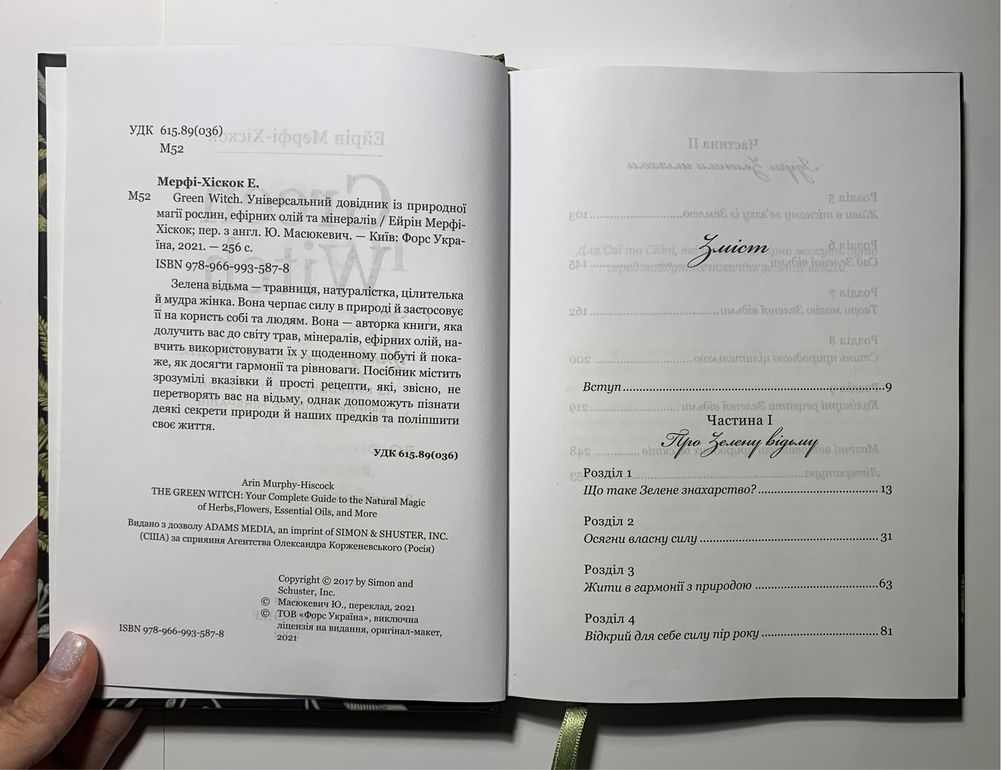 УДК 615.89(036)
М52
Мерфі-Хіскок Е.
М52 Green Witch. Універсальний довідник із природної
магії рослин, ефірних олій та мінералів / Ейрін Мерфі-
Хіскок; пер. з англ. Ю. Масюкевич. — Київ: Форс Укра-
їна, 2021. — 256 с.
ISBN 978-966-993-587-8
Зелена відьма — травниця, натуралістка, цілителька
й мудра жінка. Вона черпає силу в природі й застосовує
її на користь собі та людям. Вона — авторка книги, яка
долучить вас до світу трав, мінералів, ефірних олій, на-
вчить використовувати їх у щоденному побуті й пока-
же, як досягти гармонії та рівноваги. Посібник містить
зрозумілі вказівки й прості рецепти, які, звісно, не
перетворять вас на відьму, однак допоможуть пізнати
деякі секрети природи й наших предків та поліпшити
своє життя.
УДК 615.89(036)
Arin Murphy-Hiscock
THE GREEN WITCH: Your Complete Guide to the Natural Magic
of Herbs,Flowers, Essential Oils, and More
Видано з дозволу ADAMS MEDIA, an imprint of SIMON & SHUSTER, INC.
(США) за сприяння Агентства Олександра Корженевського (Росія)
Copyright © 2017 by Simon and
Schuster, Inc.
© Масюкевич Ю., переклад, 2021
© ТОВ «Форс Україна», виключна
ліцензія на видання, оригінал-макет,
2021
ISBN 978-966-993-587-8
Зміст
Вступ 9
Частина I
Про Зелену відьму
Розділ 1
Що таке Зелене знахарство? 13
Розділ 2
Осягни власну силу 31
Розділ 3
Жити в гармонії з природою 63
Розділ 4
Відкрий для себе силу пір року 81